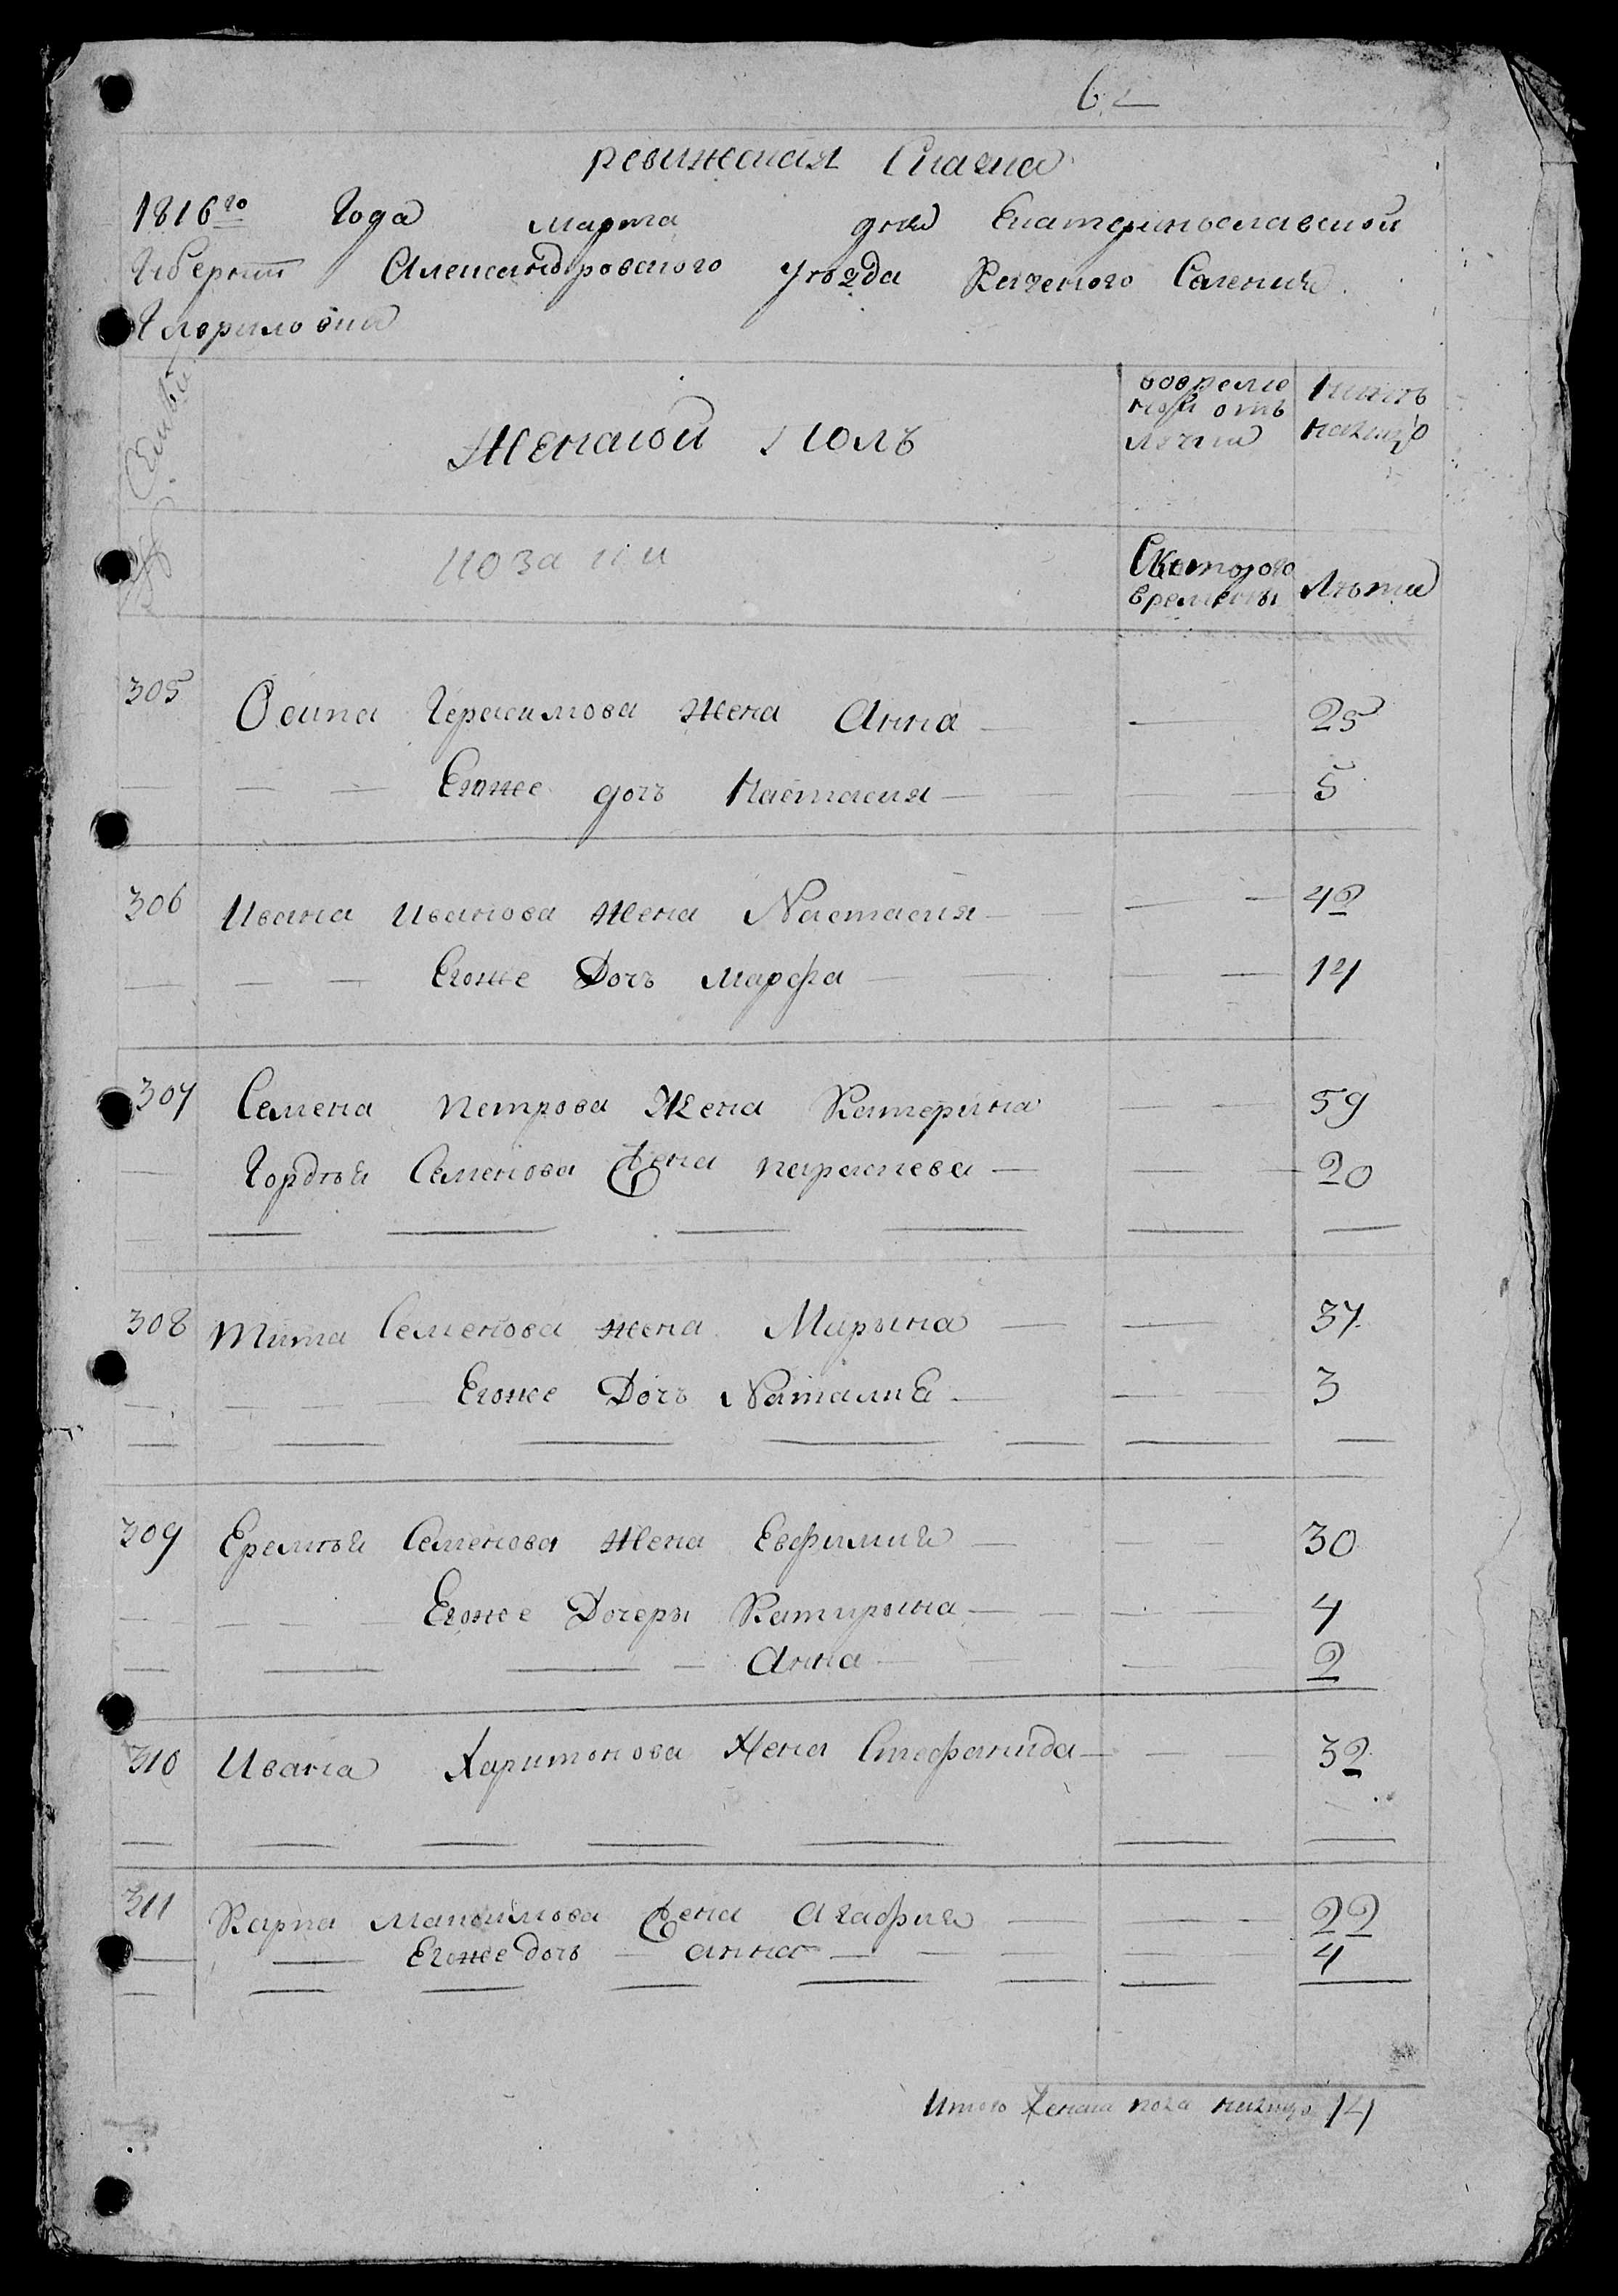 62
ревижская Сказка
1816го Года марта дня Екатеринославской
Губернии Александровского Уѣзда Казеного Селения
Гавриловки
Семьи
Женской полъ
вовреме
ной отъ
лучки
Нынѣ
налицо
казачки
Скоторого
времены
Лѣта
305 Осипа Герасимова жена Анна — — 25
— — — Егоже дочъ Настасия — — 5
306 Ивана Иванова жена Настасия — — — 42
— — — Егоже Дочъ марфа — — — 14
307 Семена петрова Жена Катерина — — 59
— Гордѣя Семенова жена параскева — — 20
308 Тита Семенова жена Марына — — 37
— — — Егоже Дочъ Наталиа — — 3
309 Еремѣя Семенова жена Евфимия — — — 30
— — — Егоже Дочеры Катирына — — — 4
— — — — Анна — — — 2
310 Ивана Харитонова Жена Стефанида — — — 32
311 Карпа Максимова жена Агафия — — — 22
— — Егоже дочъ — анна — — — 4
Итого женска пола налицо 14